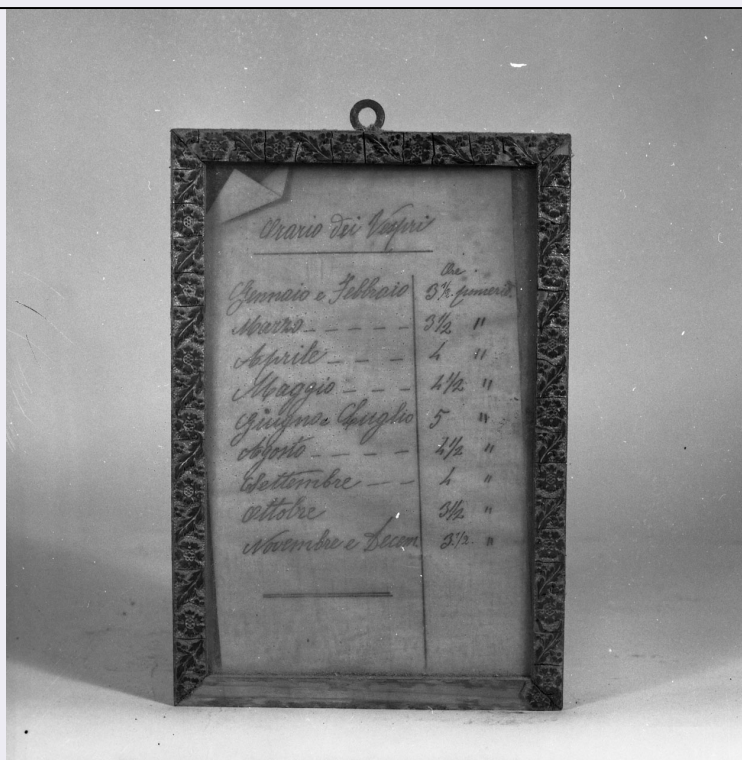 Orario dei Vespri
Ore
Gennaio e Febbraio 3½ pomerid.
Marzo _ _ _ _ _ 3½ "
Aprile _ _ _ _ 4 "
Maggio _ _ _ 4½ "
Giugno e Luglio 5 "
Agosto _ _ _ _ _ 4½ "
Settembre _ _ _ 4 "
Ottobre 3½ "
Novembre e Decem 3½. "